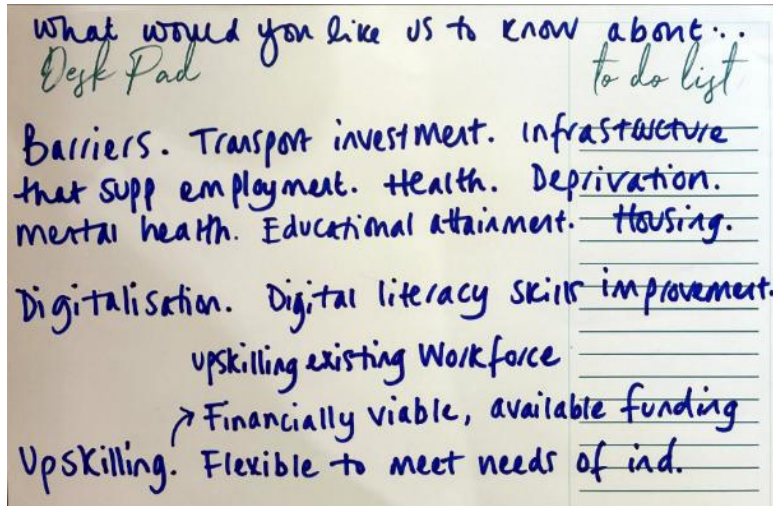 What would you like us to know about...
Desk Pad
to do list
Barriers. Transport investment. Infrastructure
that supp employment. Health. Deprivation.
mental health. Educational attainment. Housing.
Digitalisation. Digital literacy skills improvement.
upskilling existing Workforce
Financially viable, available funding
Upskilling. Flexible to meet needs of ind.